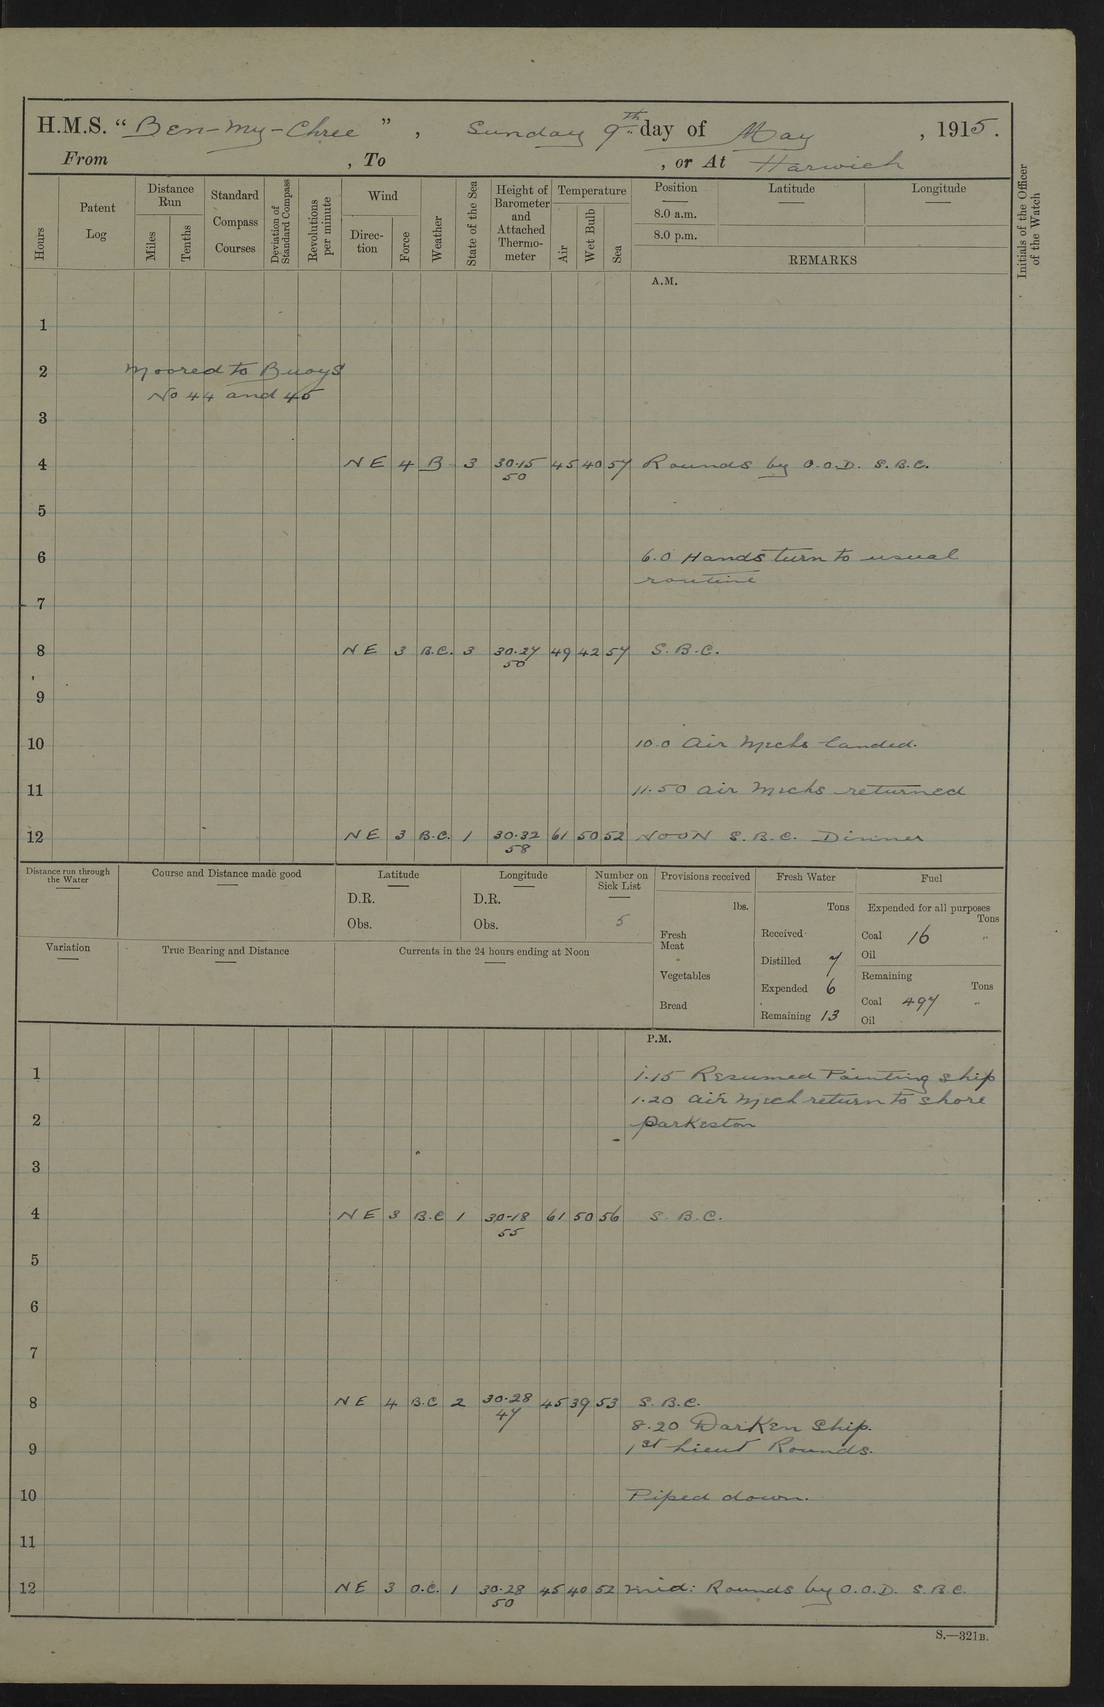 H.M.S. “Ben-my-Chree”, Sunday 9th day of May, 1915.
From , To , or At Harwich
Hours
Patent Log
Distance Run
Miles
Tenths
Standard Compass Courses
Deviation of Standard Compass
Revolutions per minute
Wind
Direction
Force
Weather
State of the Sea
Height of Barometer and Attached Thermometer
Temperature
Air
Wet Bulb
Sea
Position
Latitude
Longitude
8.0 a.m.
8.0 p.m.
REMARKS
Initials of the Officer of the Watch
A.M.
1
2 Moored to Buoys
No 44 and 45
3
4 NE 4 B 3 30.15 45 40 57 Rounds by O.O.D. S.B.C.
50
5
6 6.0 Hands turn to usual
routine
7
8 NE 3 B.C. 3 30.27 49 42 57 S.B.C.
50
9
10 10.0 Air Mechs landed.
11 11.50 Air Mechs returned
12 NE 3 B.C. 1 30.32 61 50 52 NOON S.B.C. Dinner
58
Distance run through the Water
Course and Distance made good
Latitude
D.R.
Obs.
Longitude
D.R.
Obs.
Number on Sick List
5
Provisions received
lbs.
Fresh Meat
Vegetables
Bread
Fresh Water
Tons
Received
Distilled 7
Expended 6
Remaining 13
Fuel
Expended for all purposes
Tons
Coal 16 "
Oil
Remaining
Tons
Coal 497 "
Oil
Variation
True Bearing and Distance
Currents in the 24 hours ending at Noon
P.M.
1 1.15 Resumed Painting ship
1.20 Air Mech return to shore
2 Parkeston
3
4 NE 3 B.C 1 30-18 61 50 56 S.B.C.
55
5
6
7
8 NE 4 B.C 2 30.28 45 39 53 S.B.C.
47
8.20 Darken Ship.
9 1st Lieut Rounds.
10 Piped down.
11
12 NE 3 O.C. 1 30.28 45 40 52 Mid: Rounds by O.O.D. S.B.C.
50
S.—321B.